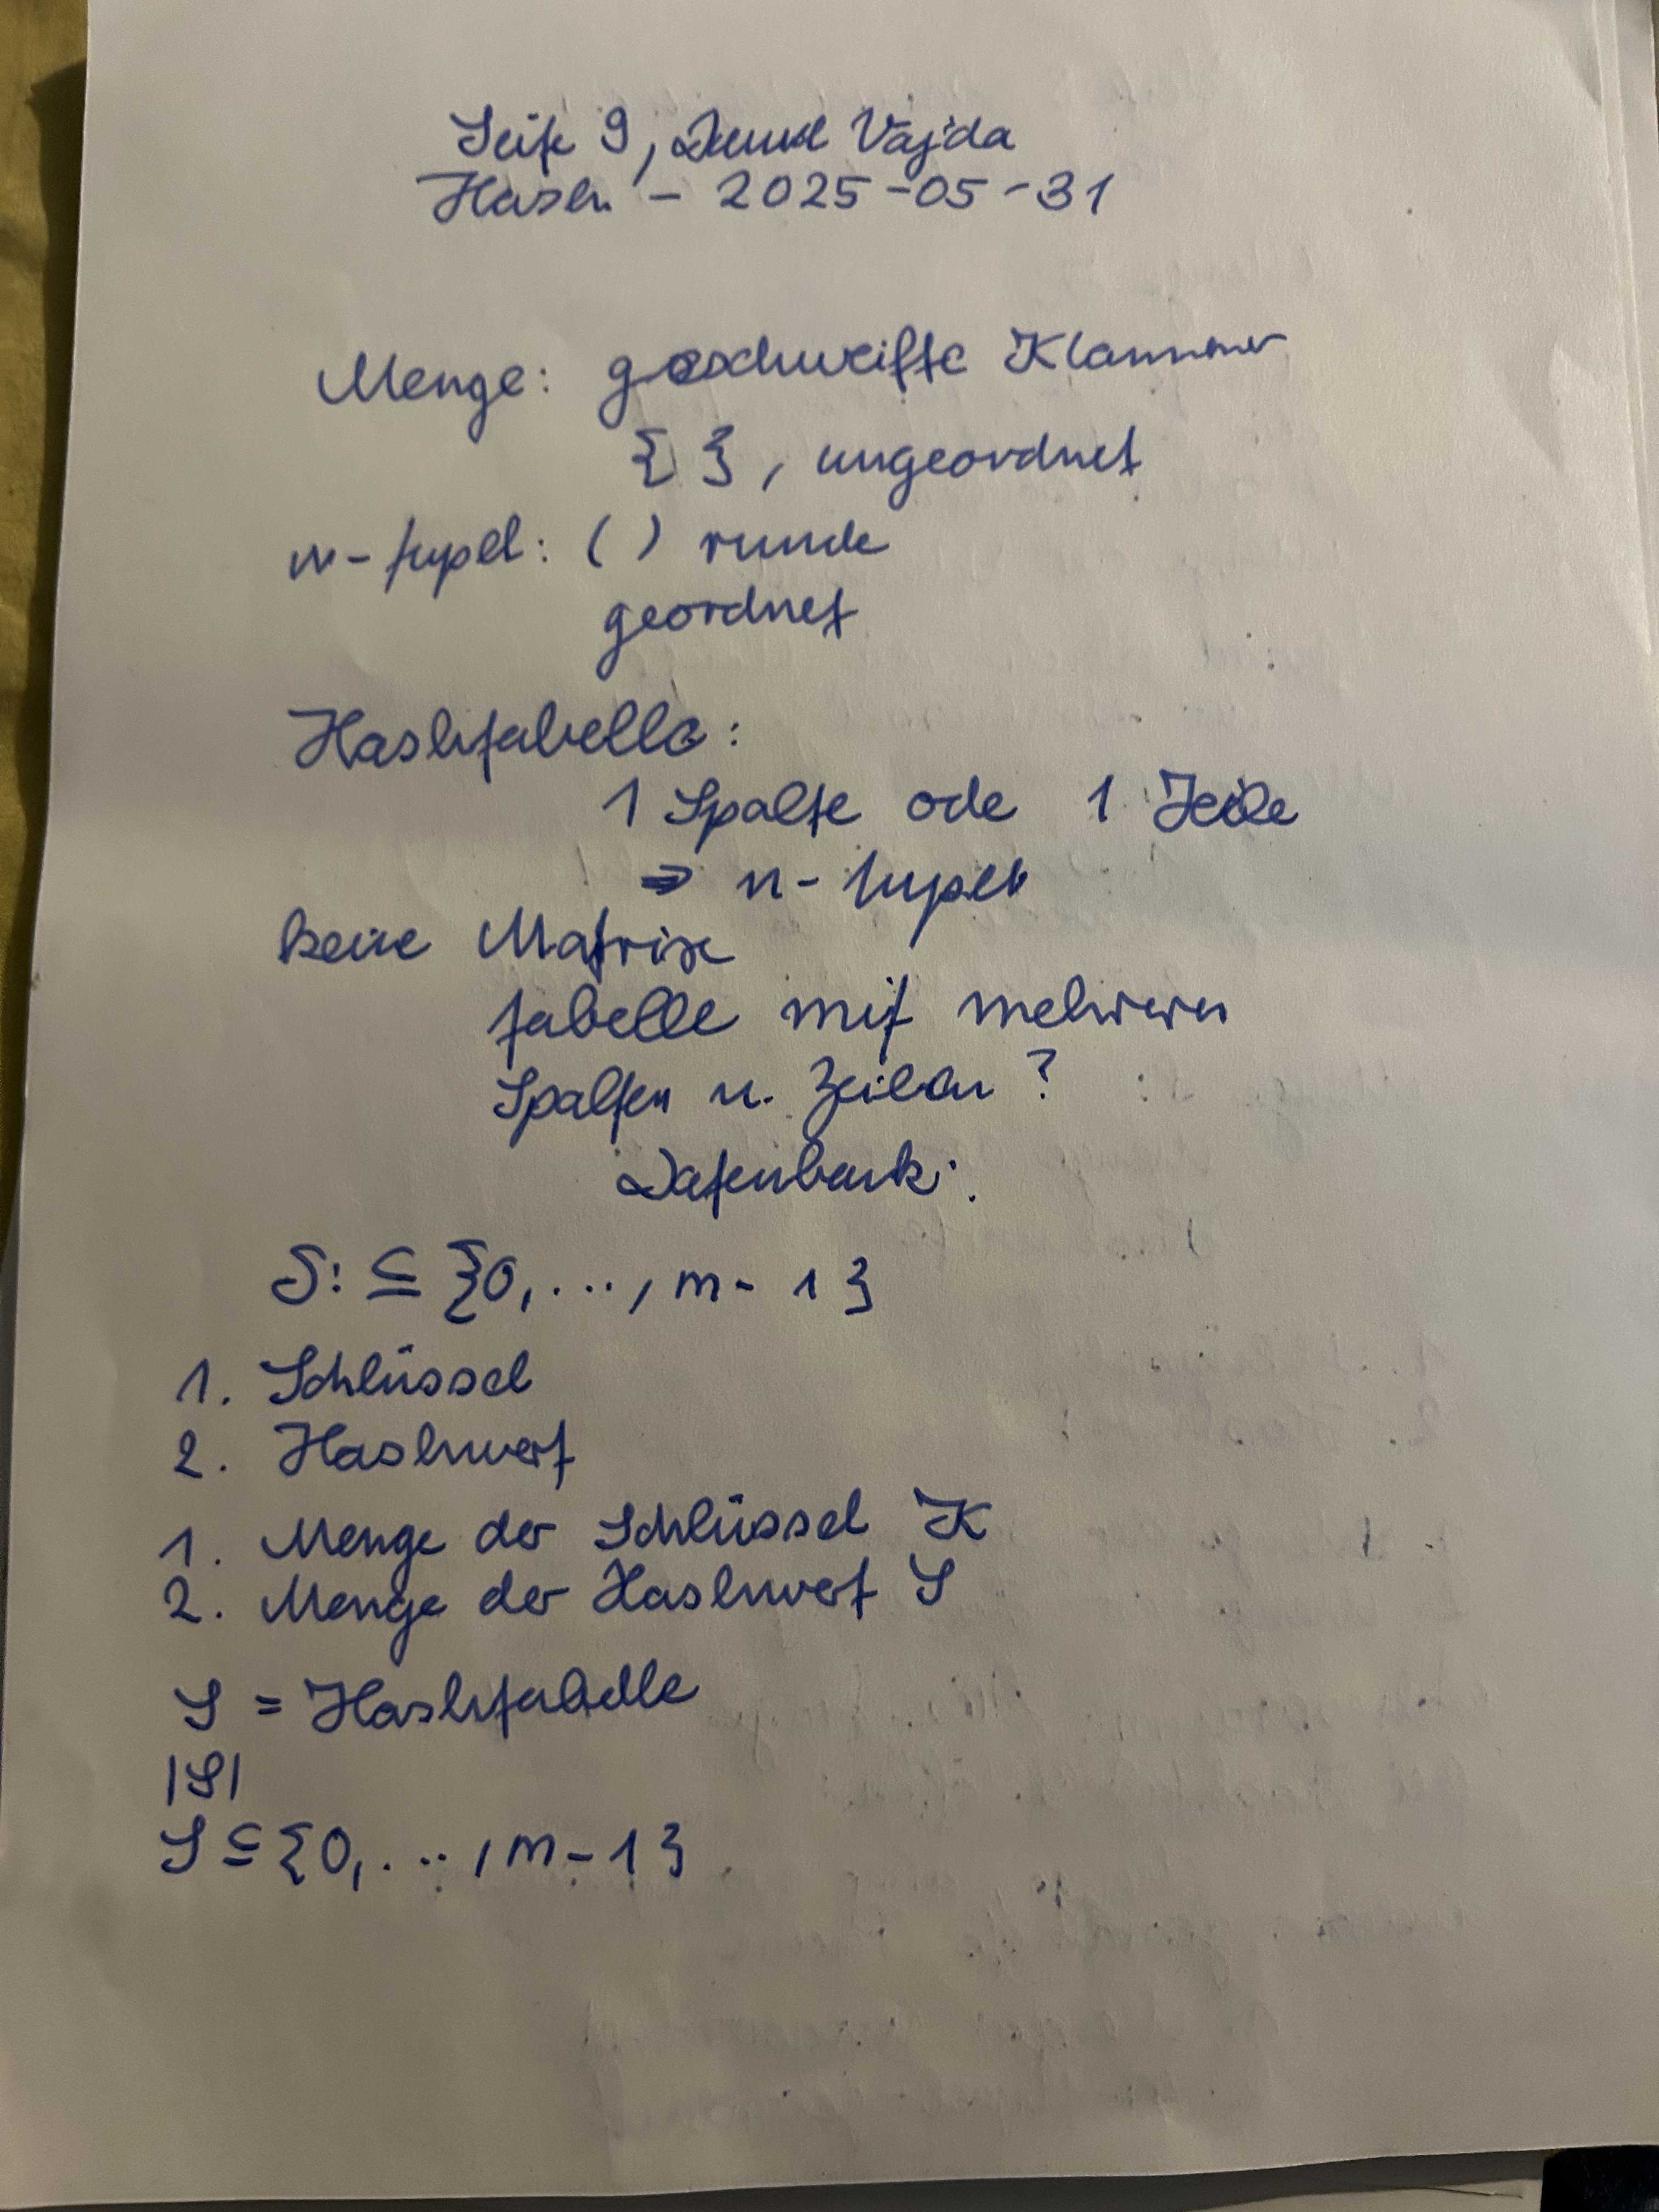 Seite 9, David Vajda
Hash - 2025-05-31
Menge: geschweifte Klammer
{ }, ungeordnet
n-tupel: ( ) runde
geordnet
Hashtabelle:
1 Spalte ode 1 Zeile
⇒ n-tupel
keine Matrix
tabelle mit mehreren
Spalten u. Zeilen ?
Datenbank:
S: ⊆ {0, ..., m-1}
1. Schlüssel
2. Hashwert
1. Menge der Schlüssel K
2. Menge der Hashwert S
S = Hashtabelle
|S|
S ⊆ {0, ..., m-1}